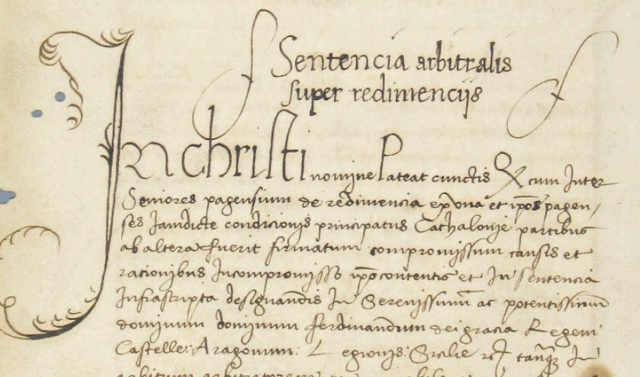 Sentencia arbitralis
super redimencijs
In christi nomine Pateat cunctis Q cum Inter
Seniores pagensium de redimencia ex vna et ipos pagen/
ses Jamdicte condicionis principatus Cathalonie partibus
ab altera fuerit firmatum compromissum causis et
racionibus Incompromisso ipo contentis et In sentencia
Infrascripta designandis In Serenissimū ac potentissimū
dominum dominum ferdinandum dei gracia Regem
Castelle: Aragonum: Legionis: Sicilie tanq̄ In
arbitrum arbitratorem